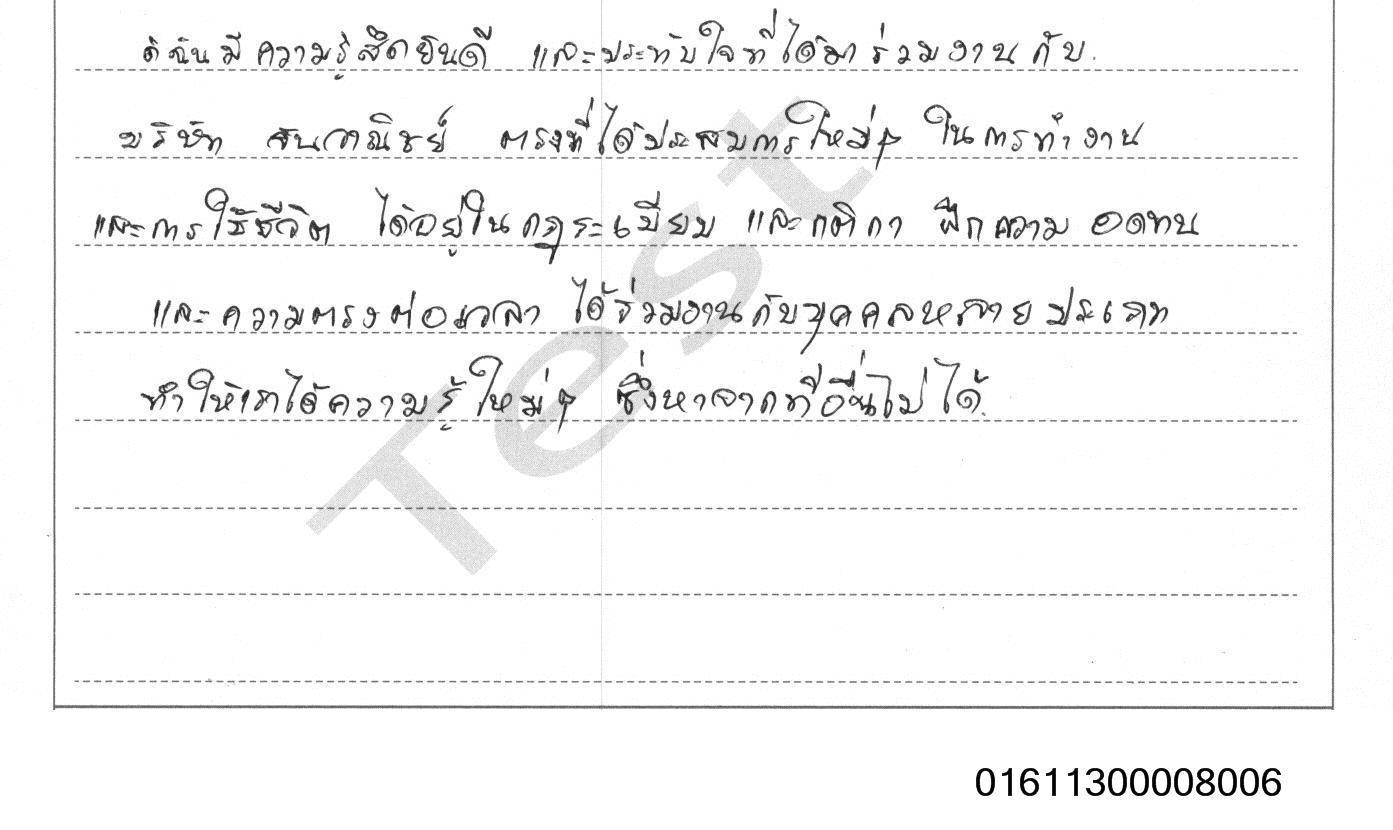 ดิฉันมีความรู้สึกยินดี และประทับใจที่ได้มาร่วมงานกับ
บริษัท ตรงที่ได้ประสบการใหม่ๆ ในการทำงาน
และการใช้ชีวิต ได้อยู่ในกฎระเบียบ และกติกา ฝึกความอดทน
และความตรงต่อเวลา ได้ร่วมงานกับบุคคลหลายประเภท
ทำให้เราได้ความรู้ใหม่ๆ ซึ่งหาจากที่อื่นไม่ได้.
Test
01611300008006